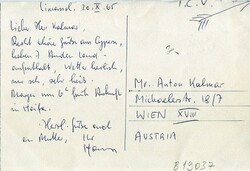 Limassol, 20.X.65
T.C.V.
Liebe Herr Kalmar,
Recht schöne Grüße aus Cypern,
haben 7 Stunden Land-
aufenthalt, Wetter herrlich,
nur sehr, sehr heiß.
Morgen um 6h früh Ankunft
in Haifa.
Herzl. Grüße auch
an Mutter, Ihr
Hans
Mr. Anton Kalmar
Michaelerstr. 18/7
WIEN XVIII
AUSTRIA
819037